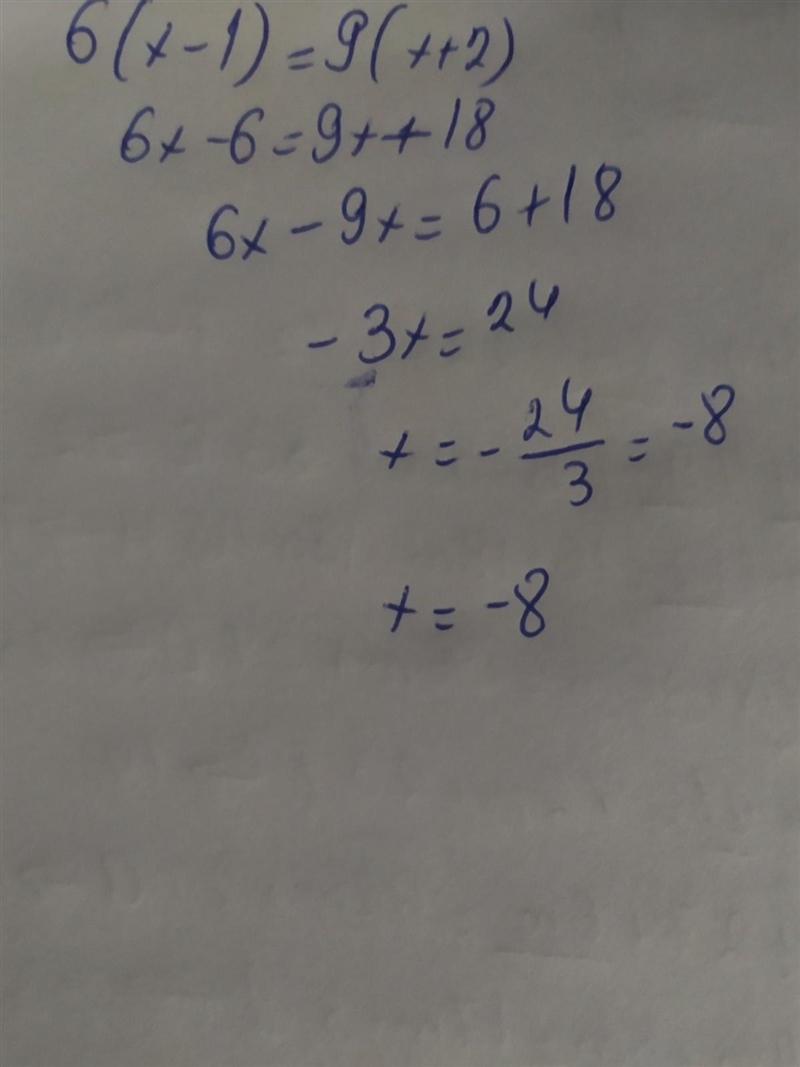 6(x-1)=9(x+2)
6x-6=9x+18
6x-9x=6+18
-3x=24
x=-24/3=-8
x=-8